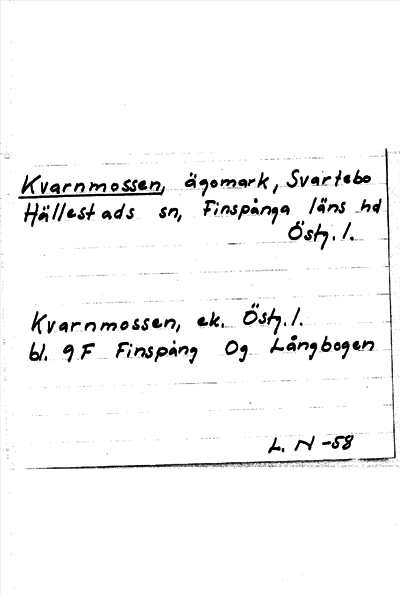 Kvarnmossen, ägomark, Svartebo
Hällestads sn, Finspånga läns hd
Östg. l.
Kvarnmossen, ek. Östg. l.
bl. 9F Finspång Og Långbogen
L. N -58